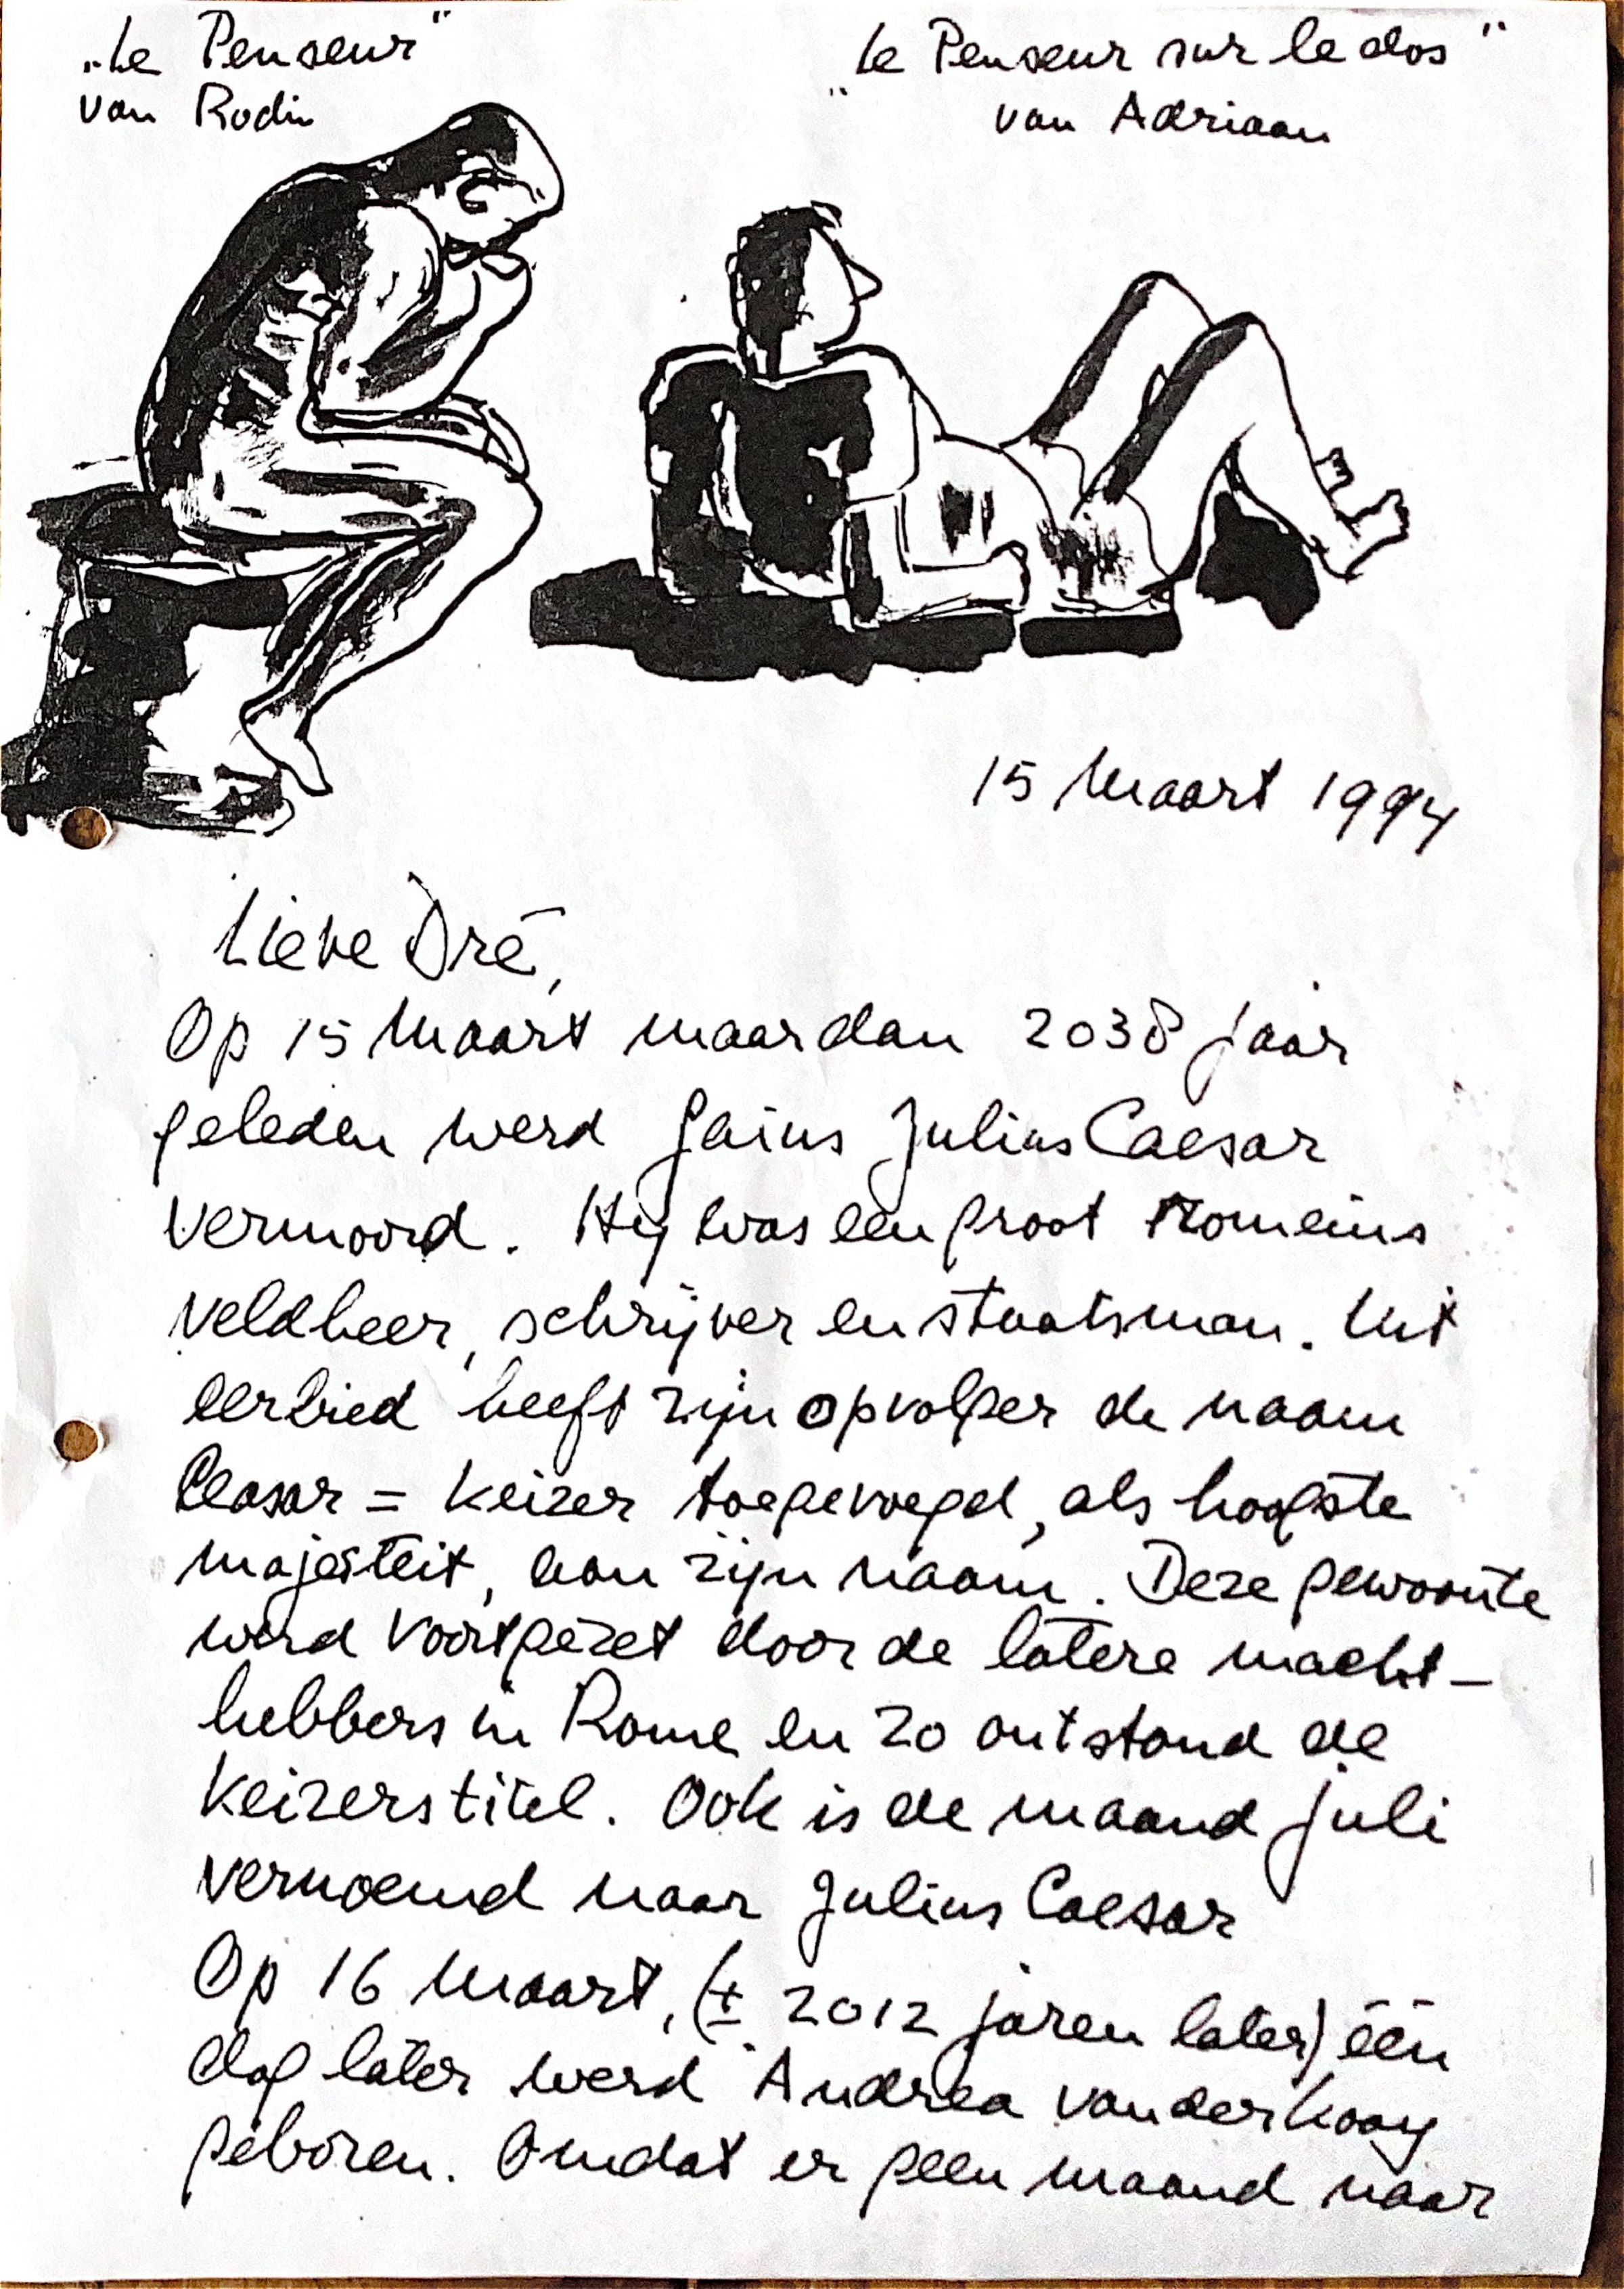 „Le Penseur"
van Rodin
"Le Penseur sur le dos"
van Adriaan
15 Maart 1994
Lieve Dré,
Op 15 Maart maar dan 2038 jaar
geleden werd Gaius Julius Caesar
vermoord. Hij was een groot Romeins
veldheer, schrijver en staatsman. Uit
eerbied heeft zijn opvolger de naam
Ceasar = Keizer toegevoegd, als hoogste
majesteit, aan zijn naam. Deze gewoonte
werd voortgezet door de latere macht-
hebbers in Rome en zo ontstond de
Keizerstitel. Ook is de maand juli
vernoemd naar Julius Caesar
Op 16 Maart, (± 2012 jaren later) één
dag later werd Andrea van der Kooy
geboren. Omdat er geen maand naar